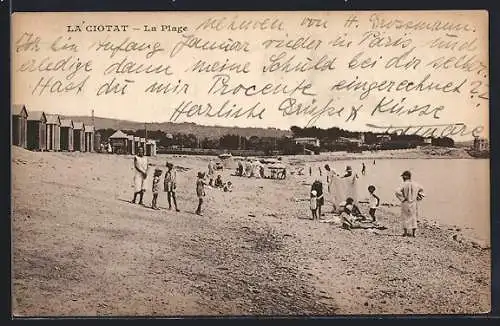 LA CIOTAT — La Plage
nehmen von H. Grossmann.
Ich bin anfang Januar wieder in Paris, und
erledige dann meine Schuld bei dor selbst.
Hast du mir Procente eingerechnet?
Herzliche Grüsse & Küsse